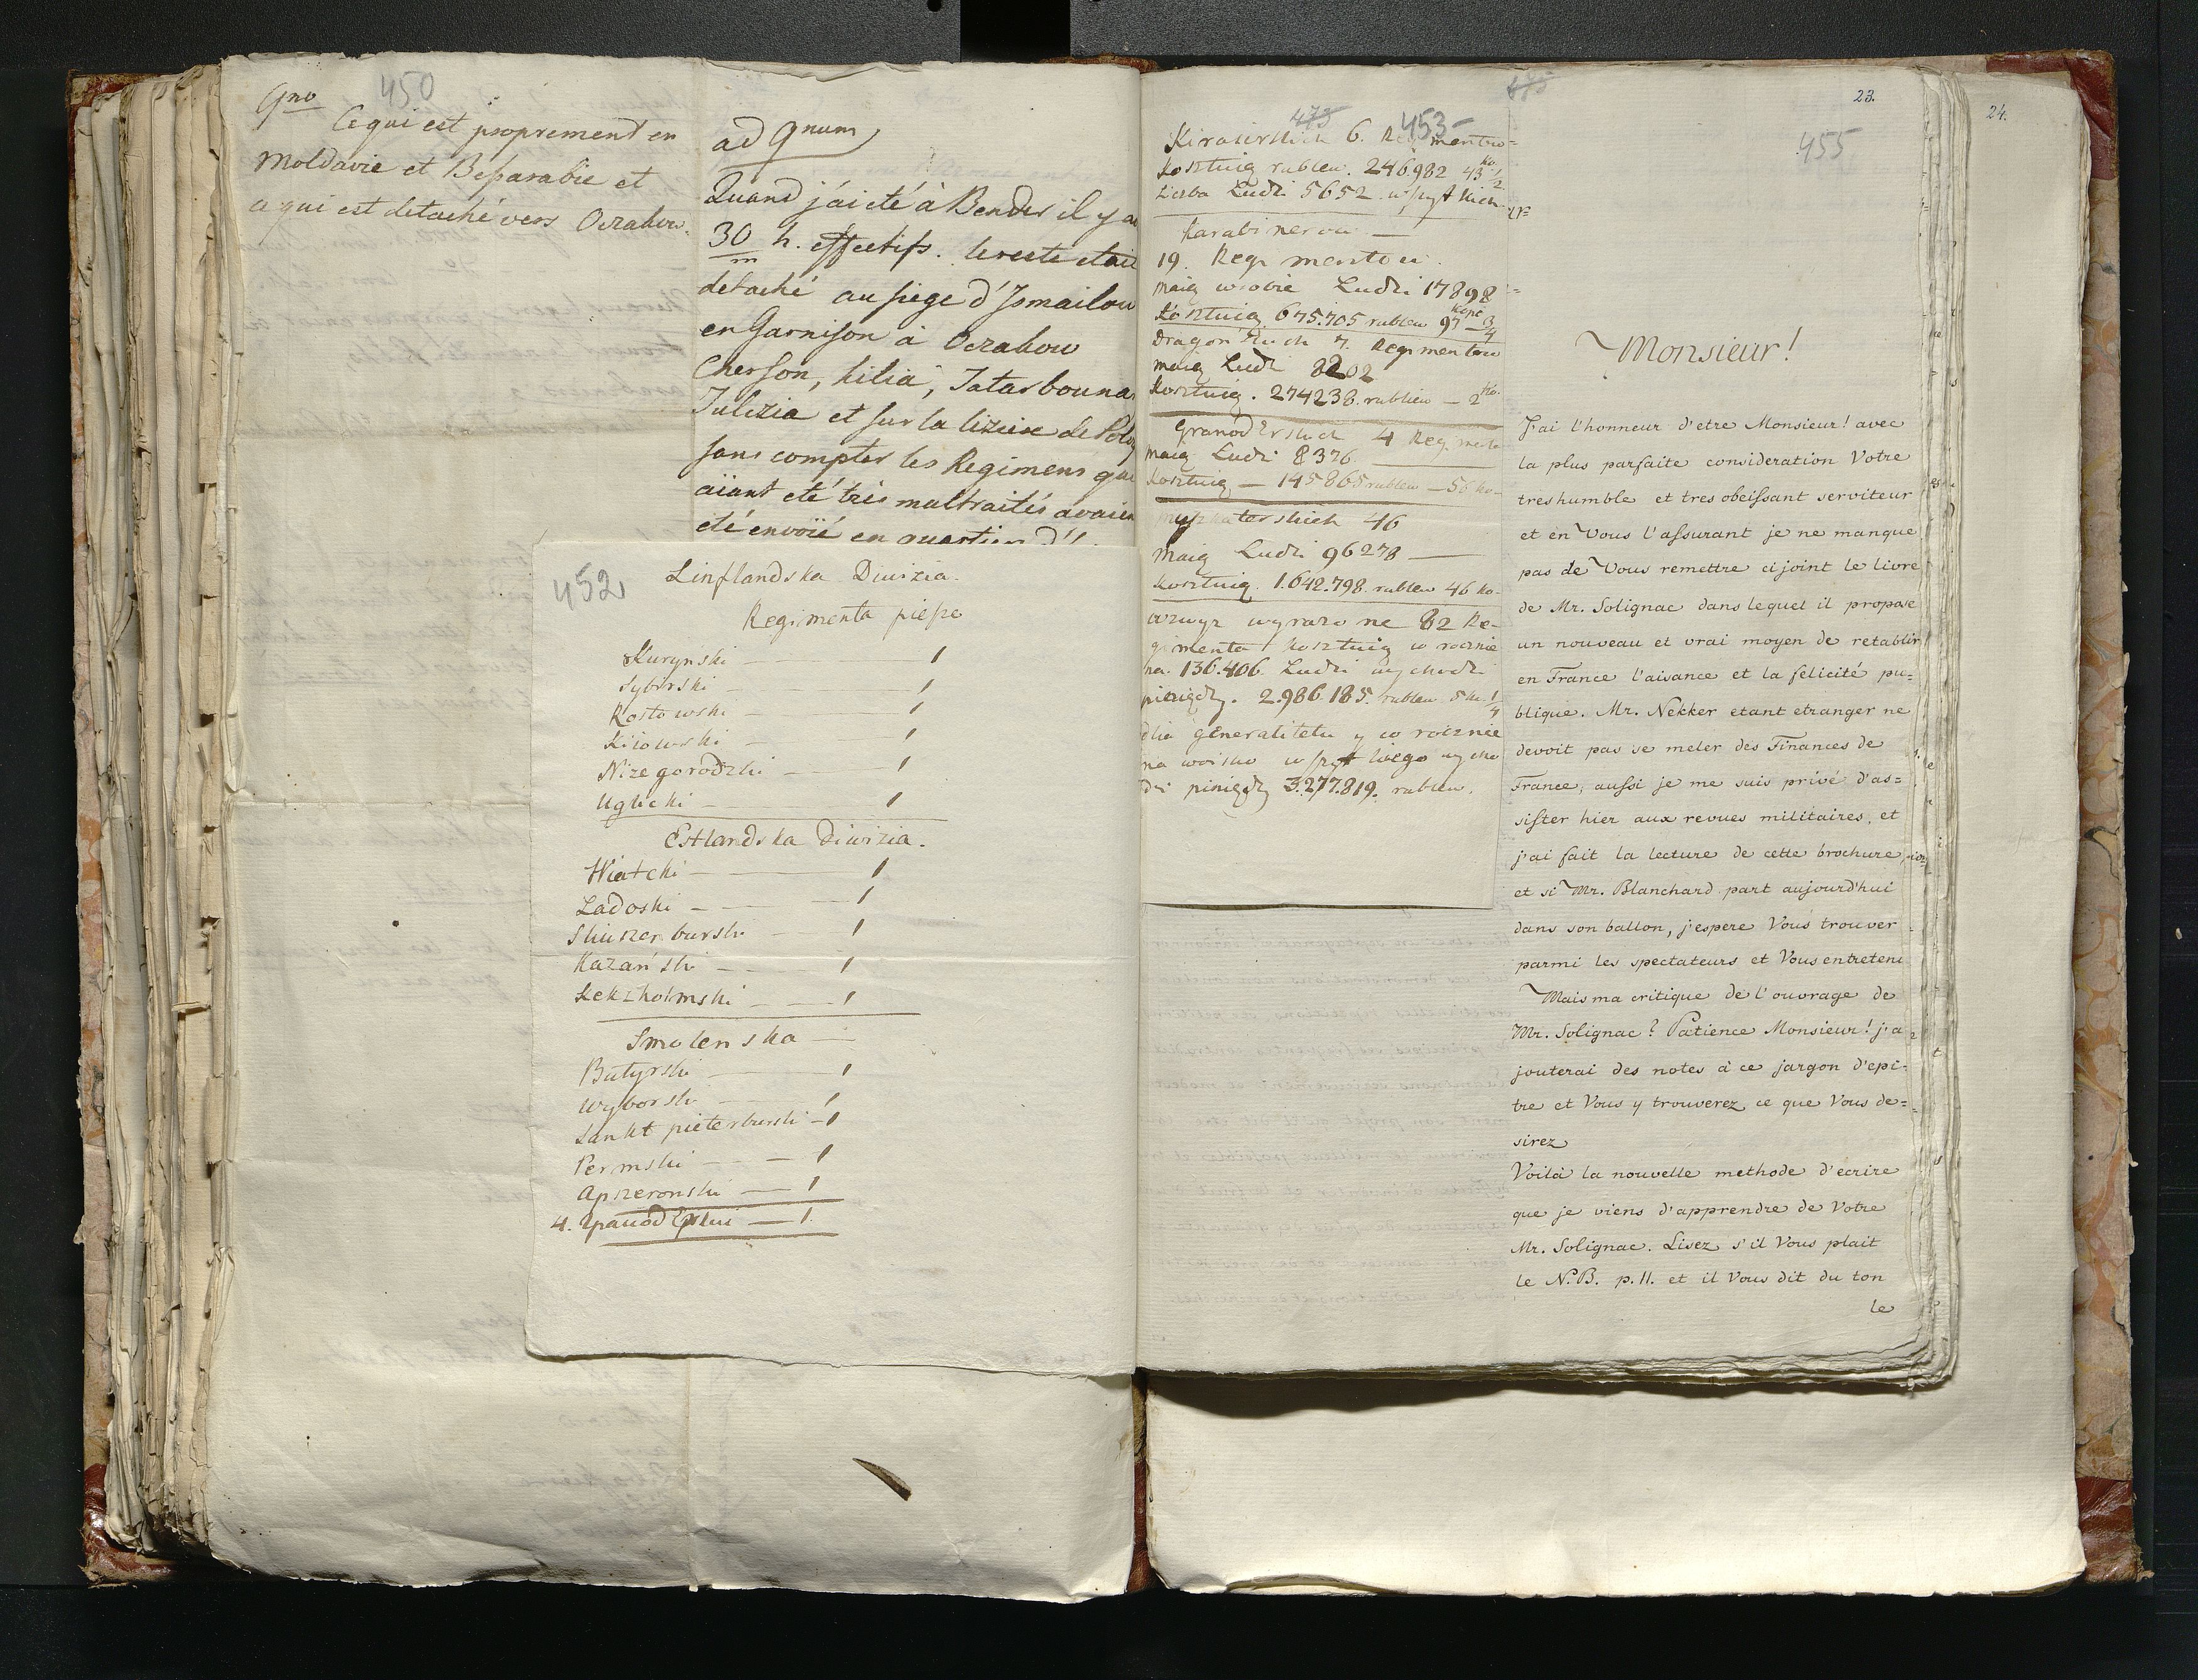 9no
450
Ce qui est proprement en
Moldavie et Beßarabie et
ce qui est detaché vers Oczakow.
ad 9num
Quand j'ai eté à Bender il y a
30 h. effectifs. le reste etait
m
detaché au siege d'Ismailow
en Garnison à Oczakow
Cherson, Kilia, Tatarbouna
Tulczia et sur la liziere de Polo
sans compter les Regimens qui
aiant eté très maltraités avaien
eté envoïé en quartier d'
452
Linflandska Diwizia.
Regimenta pieße
Kurynski — 1
Sybirski — 1
Rostowski — 1
Kiiowski — 1
Nizegorodzki — 1
Uglicki — 1
Estlandska Diwizia.
Wiatcki — 1
Ladoski — 1
Sliuszenburski — 1
Kazański — 1
Kekzholmski — 1
Smolenska —
Butyrski — 1
Wyborski — 1
Sankt pieterburski — 1
Permski — 1
Apszeronski — 1
4. — 1.
475
453
Kirasirskich 6. Regimentow
kosztuią rublew. 246.982 43 ko 1/2
Liczba Ludzi 5652
Karabinerow —
19. Regimentow.
maią w sobie Ludzi 17898
kosztuią 675.705 rublew 97 kope 3/4
Dragońskich 7. Regimentow
maią Ludzi 8202
kosztuią. 274238. rublew — 2 ko.
4 Regimenta
maią Ludzi 8376
kosztuią — 145865 rublew — 56 ko-
Mußkaterskich 46
maią Ludzi 96278 —
kosztuią 1.642.798. rublew 46 ko-
wzwyz wyrazone 82 Re-
gimenta kosztuią w rocznie
na. 136.406. Ludzi wychodzi
pieniędzy. 2.986.185. rublew 5 ko. 1/4
dlia generalitetu y w rocznie
na woisko wycho
dzi piniędzy 3.277.819. rublew.
675
23.
455
24.
Monsieur!
J'ai l'honneur d'etre Monsieur! avec
la plus parfaite consideration Votre
tres humble et tres obeißant serviteur
et en Vous l'aßurant je ne manque
pas de Vous remettre ci joint le livre
de Mr. Solignac dans lequel il propose
un nouveau et vrai moyen de retablir
en France l'aisance et la felicité pu=
blique. Mr. Nekker etant etranger ne
devoit pas se meler des Finances de
France, außi je me suis privé d'as=
sister hier aux revues militaires, et
j'ai fait la lecture de cette brochure,
et si Mr. Blanchard part aujourd'hui
dans son ballon, j'espere Vous trouver
parmi les spectateurs et Vous entreteni
Mais ma critique de l'ouvrage de
Mr. Solignac? Patience Monsieur! j'a
jouterai des notes à ce jargon d'epi=
tre et Vous y trouverez ce que Vous de=
sirez
Voilà la nouvelle methode d'ecrire
que je viens d'apprendre de Votre
Mr. Solignac. Lisez s'il Vous plait
le N.B. p. 11. et il Vous dit du ton
le